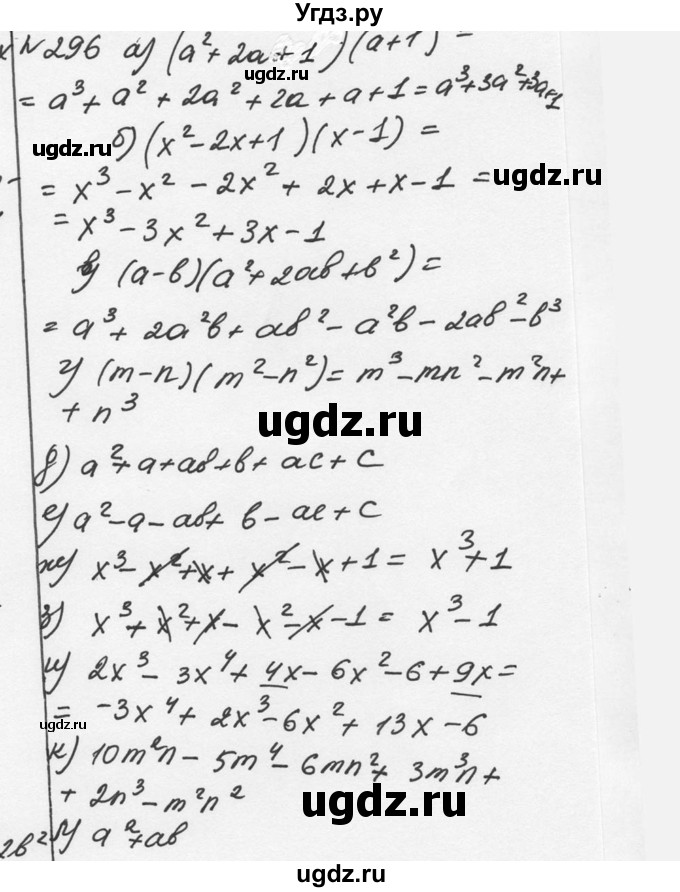 Угдз.ру
№296 а) (a²+2a+1)(a+1) =
ugdz.ru
= a³+a²+2a²+2a+a+1 = a³+3a²+3a+1
ugdz.ru
б) (x²-2x+1)(x-1) =
ugdz.ru
= x³-x²-2x²+2x+x-1 =
ugdz.ru
= x³-3x²+3x-1
в) (a-b)(a²+2ab+b²) =
= a³+2a²b+ab²-a²b-2ab²-b³
г) (m-n)(m²-n²) = m³-mn²-m²n+
+n³
ugdz.ru
д) a²+a+ab+b+ac+c
е) a²-a-ab+b-ac+c
ж) x³-x²+x+x²-x+1 = x³+1
з) x³+x²+x-x²-x-1 = x³-1
и) 2x³-3x⁴+4x-6x²-6+9x =
ugdz.ru
= -3x⁴+2x³-6x²+13x-6
к) 10m²n-5m⁴-6mn²+3m³n+
+2n³-m²n²
ugdz.ru
2b²
л) a²+ab
ugdz.ru